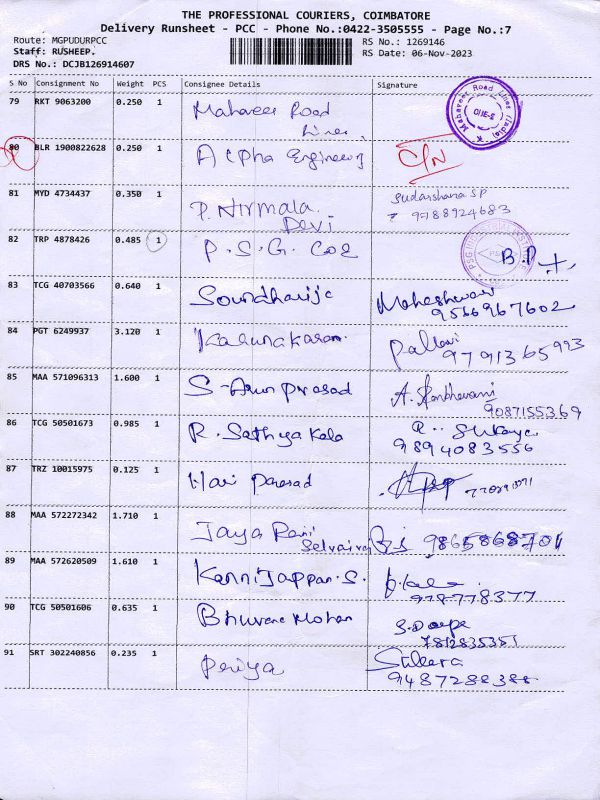 THE PROFESSIONAL COURIERS, COIMBATORE
Delivery Runsheet - PCC - Phone No.:0422-3505555 - Page No.:7
Route: MGPUDURPCC RS No.: 1269146
Staff: RUSHEEP. RS Date: 06-Nov-2023
DRS No.: DCJB126914607
S No Consignment No Weight PCS Consignee Details Signature
79 RKT 9063200 0.250 1 Mahaveer Road Lines
80 BLR 1900822628 0.250 1 Alpha Engineering C/N
81 MYD 4734437 0.350 1 P. Nirmala Devi Sudarshana SP
9788924683
82 TRP 4878426 0.485 1 P. S. G. Coe B.P
83 TCG 40703566 0.640 1 Maheshwari
9566967602
84 PGT 6249937 3.120 1 Karunakaran Pallavi
9791365993
85 MAA 571096313 1.600 1 S. Arun Prasad
9087155369
86 TCG 50501673 0.985 1 R. Sathya Kala R. Sukanya
9894083556
87 TRZ 10015975 0.125 1 Hari Prasad
88 MAA 572272342 1.710 1 Jaya Rani
Selvaraj 9865868701
89 MAA 572620509 1.610 1 Kannijappan. S.
9787778377
90 TCG 50501606 0.635 1 Bhuvana Mohan
7812835351
91 SRT 302240856 0.235 1 Periya
9487288388